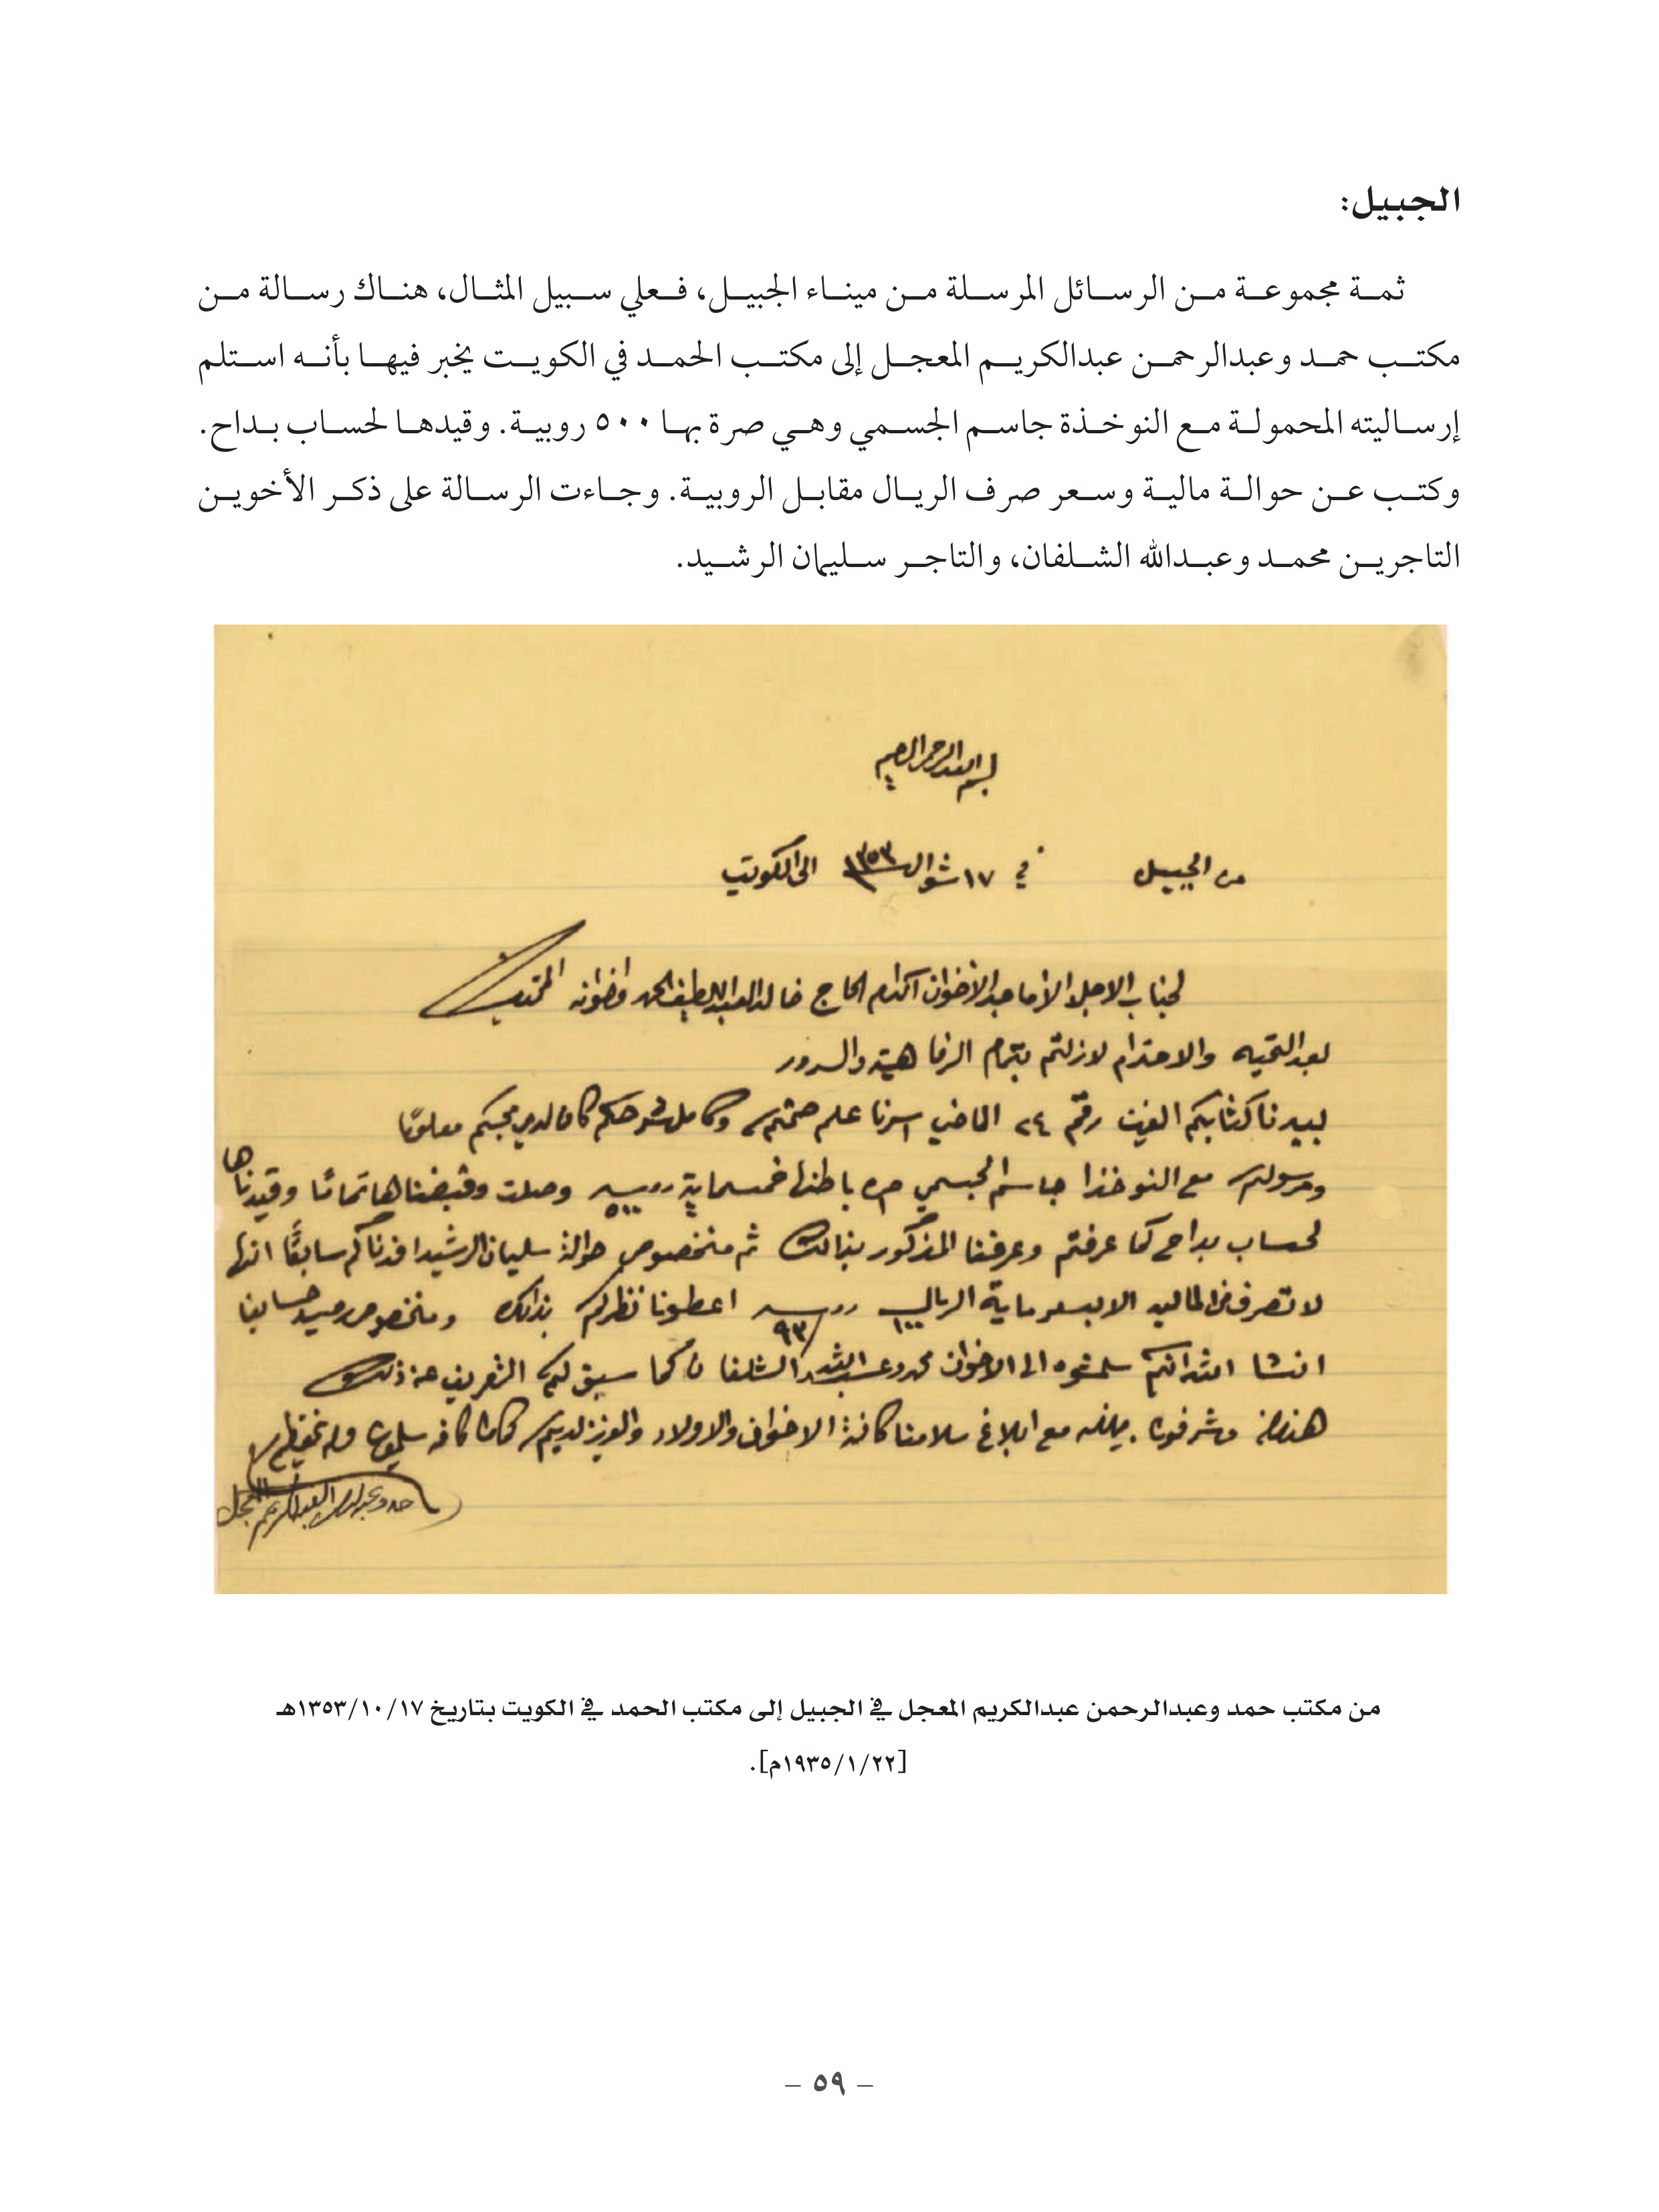 الجبيل:
ثمة مجموعة من الرسائل المرسلة من ميناء الجبيل، فعلي سبيل المثال، هناك رسالة من
مكتب حمد وعبدالرحمن عبدالكريم المعجل إلى مكتب الحمد في الكويت يخبر فيها بأنه استلم
إرساليته المحمولة مع النوخذة جاسم الجسمي وهي صرة بها ٥٠٠ روبية. وقيدها لحساب بداح.
وكتب عن حوالة مالية وسعر صرف الريال مقابل الروبية. وجاءت الرسالة على ذكر الأخوين
التاجرين محمد وعبدالله الشلفان، والتاجر سليمان الرشيد.
بسم الله الرحمن الرحيم
من الجبيل في ١٧ شوال ١٣٥٣ الى الكويت
لجناب الاجل الأماجد الأخوان اكرام الحاج خالد العبداللطيف الحمد واخوانه المحترمين
بعد التحيه والاحترام لازلتم بتمام الرفاهية والسرور
بيدنا كتابكم رقم ٢٤ الماضي اسرنا علم صحتكم وكامل شرحكم كان لدى محبكم معلومًا
ومرسولكم مع النوخذا جاسم الجسمي صره باطنها خمسماية روبيه ٥٠٠ وصلت وقبضناها تمامًا وقيدناها
لحساب بداح كما عرفتم وعرفنا المذكور بذالك ثم منخصوص حوالة سليمان الرشيد افدناكم سابقًا انها
لا تصرف الا بسعر ماية الريال ١٠٠ روبيه ٩٣ اعطونا نظركم بذالك ومنخصوص حسابنا
انشا الله انكم سلمتوه الى الاخوان محمد وعبدالله الشلفان كما سبق لكم التعريف عن ذلك
هذا ما لزم مع ابلاغ سلامنا كافة الاخوان والاولاد والعزيز لديكم كما منا كافه يسلمون ودمتم
حمد وعبدالرحمن العبدالكريم المعجل
من مكتب حمد وعبدالرحمن عبدالكريم المعجل في الجبيل إلى مكتب الحمد في الكويت بتاريخ ١٣٥٣/١٠/١٧هـ
[١٩٣٥/١/٢٢م].
– ٥٩ –